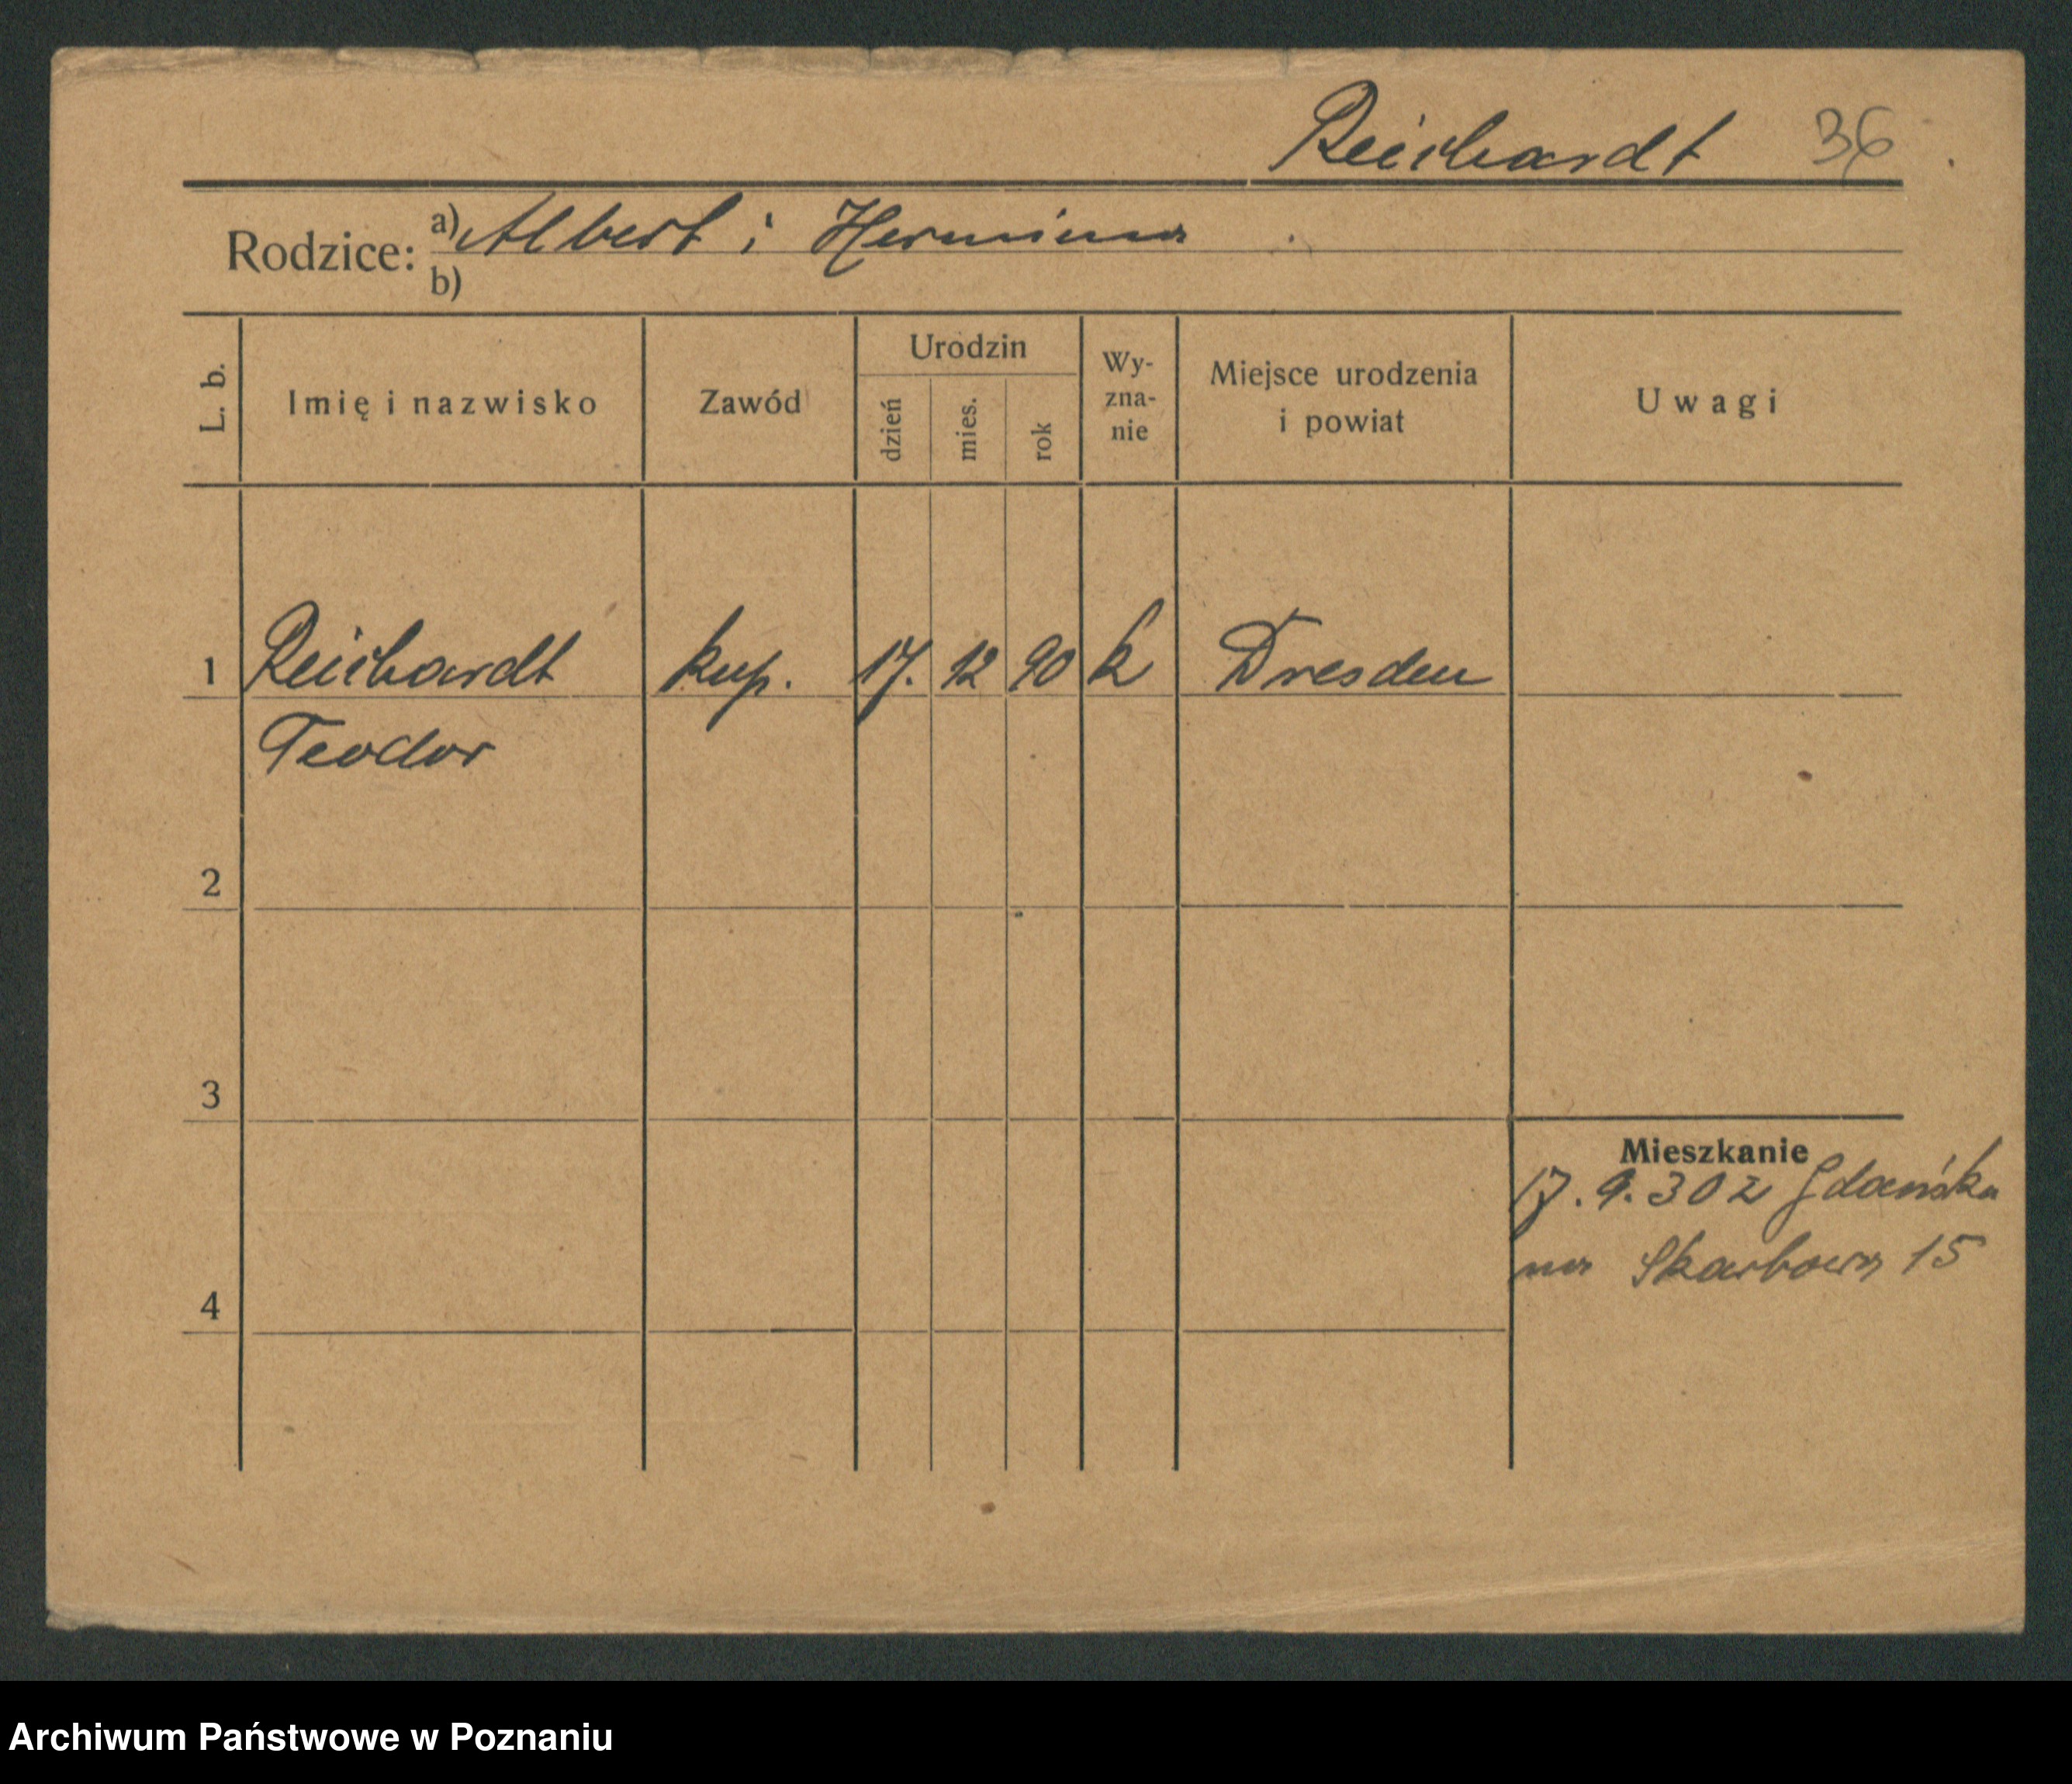 Reichardt 36
Rodzice: a) Albert i Hermina
b)
L. b.
Imię i nazwisko
Zawód
Urodzin
dzień
mies.
rok
Wy-
zna-
nie
Miejsce urodzenia
i powiat
Uwagi
1 Reichardt kup. 17. 12 90 k Dresden
Teodor
2
3
4
Mieszkanie
17. 9. 30 z Gdańska
na Skarbową 15
Archiwum Państwowe w Poznaniu